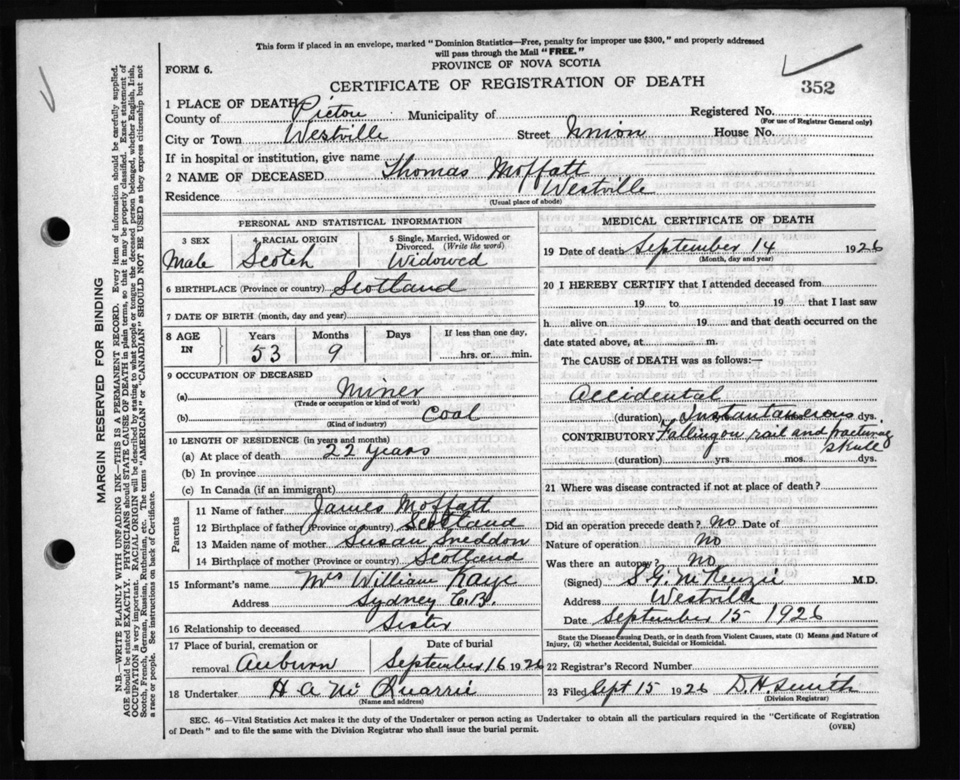 This form if placed in an envelope, marked "Dominion Statistics—Free, penalty for improper use $300," and properly addressed
will pass through the Mail "FREE."
PROVINCE OF NOVA SCOTIA
FORM 6.
CERTIFICATE OF REGISTRATION OF DEATH
352
1 PLACE OF DEATH
County of Pictou Municipality of Registered No.
(For use of Registrar General only)
City or Town Westville Street Union House No.
If in hospital or institution, give name
2 NAME OF DECEASED Thomas Moffatt
Residence Westville
(Usual place of abode)
PERSONAL AND STATISTICAL INFORMATION
3 SEX 4 RACIAL ORIGIN 5 Single, Married, Widowed or
Divorced. (Write the word)
Male Scotch Widowed
6 BIRTHPLACE (Province or country) Scotland
7 DATE OF BIRTH (month, day and year)
8 AGE IN Years Months Days If less than one day,
53 9 hrs. or min.
9 OCCUPATION OF DECEASED
(a) Miner
(Trade or occupation or kind of work)
(b) Coal
(Kind of industry)
10 LENGTH OF RESIDENCE (in years and months)
(a) At place of death 22 years
(b) In province
(c) In Canada (if an immigrant)
Parents
11 Name of father James Moffatt
12 Birthplace of father (Province or country) Scotland
13 Maiden name of mother Susan Sneddon
14 Birthplace of mother (Province or country) Scotland
15 Informant's name Mrs William Kaye
Address Sydney C.B.
16 Relationship to deceased Sister
17 Place of burial, cremation or Date of burial
removal Auburn September 16 1926
18 Undertaker H A McQuarrie
(Name and address)
MEDICAL CERTIFICATE OF DEATH
19 Date of death September 14 1926
(Month, day and year)
20 I HEREBY CERTIFY that I attended deceased from
19 to 19 that I last saw
h alive on 19 and that death occurred on the
date stated above, at m.
The CAUSE of DEATH was as follows:—
Accidental
(duration) Instantaneous dys.
CONTRIBUTORY Falling on rail and fracturing
skull
(duration) yrs. mos. dys.
21 Where was disease contracted if not at place of death?
Did an operation precede death? No Date of
Nature of operation No
Was there an autopsy? No
(Signed) S G McKenzie M.D.
Address Westville
Date September 15 1926
State the Disease Causing Death, or in death from Violent Causes, state (1) Means and Nature of
Injury, (2) whether Accidental, Suicidal or Homicidal.
22 Registrar's Record Number
23 Filed Sept 15 1926 D.H. Smith
(Division Registrar)
SEC. 46—Vital Statistics Act makes it the duty of the Undertaker or person acting as Undertaker to obtain all the particulars required in the "Certificate of Registration
of Death" and to file the same with the Division Registrar who shall issue the burial permit.
(OVER)
MARGIN RESERVED FOR BINDING
N.B.—WRITE PLAINLY, WITH UNFADING INK—THIS IS A PERMANENT RECORD. Every item of information should be carefully supplied.
AGE should be stated EXACTLY. PHYSICIANS should STATE CAUSE OF DEATH in plain terms, so that it may be properly classified. Exact statement of
OCCUPATION is very important. RACIAL ORIGIN will be described by stating to what people or tongue the deceased person belonged, whether English, Irish,
Scotch, French, German, Russian, Ruthenian, etc. The terms "AMERICAN" or "CANADIAN" SHOULD NOT BE USED as they express citizenship but not
a race or people. See instructions on back of Certificate.